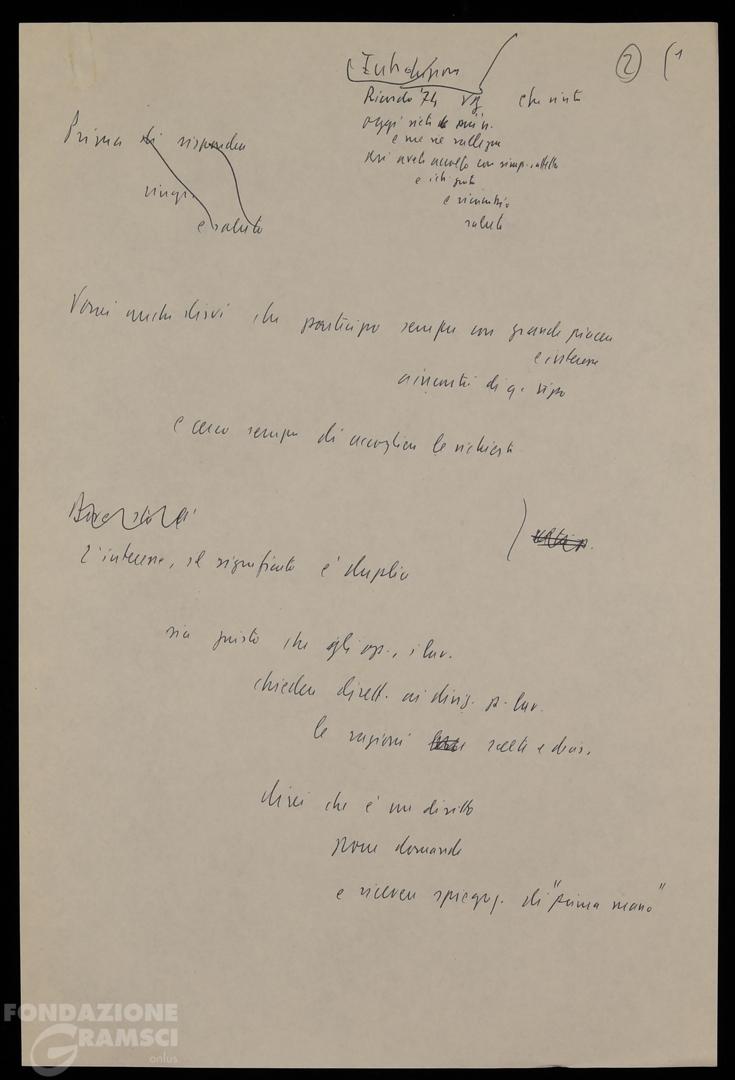 Introduzione
2 (1
Ricordo '74 che visita
oggi siete di più
e me ne rallegro
mi avete accolto con simp. affetto
e vi ringrazio
saluto
Prima di rispondere
ringr.
e saluto
Vorrei anche dirvi che partecipo sempre con grande piacere
e interesse
a incontri di q. tipo
e cerco sempre di accogliere le richieste
L'interesse, il significato è duplice
sia giusto che gli op., i lav.
chiedere dirett. ai dirig. p. lav.
le ragioni scelte e decis.
direi che è un diritto
porre domande
e ricevere spiegaz. di "prima mano"
FONDAZIONE
GRAMSCI
onlus